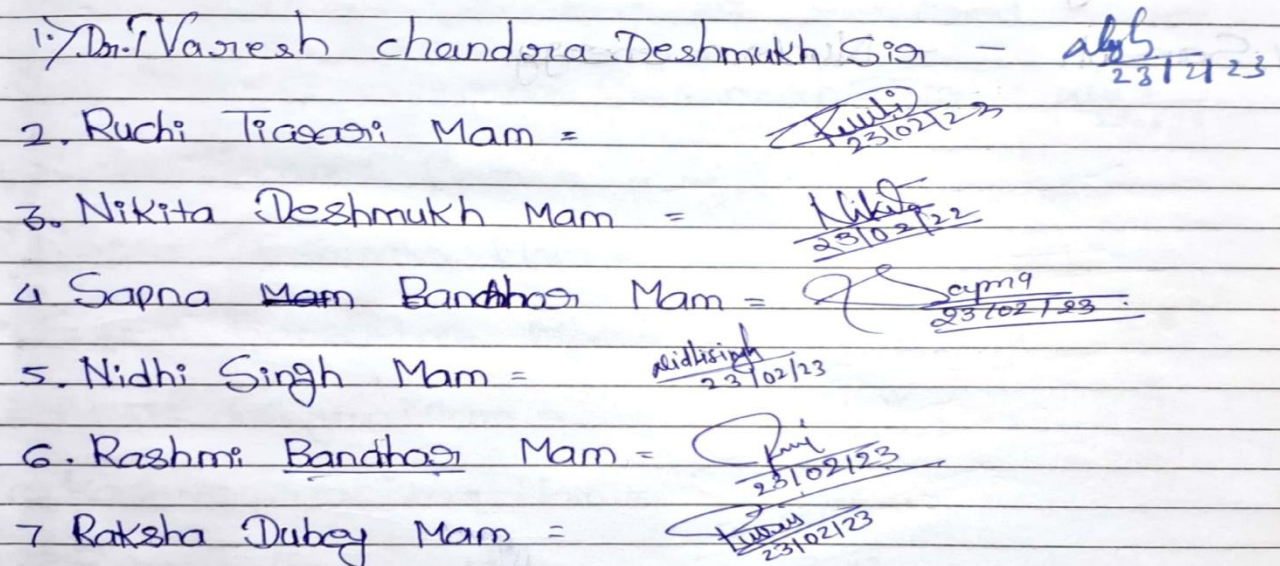 1.) Dr. Naresh chandra Deshmukh Sir - 23/2/23
2. Ruchi Tiwari Mam = Ruchi 23/02/23
3. Nikita Deshmukh Mam = Nikita 23/02/22
4 Sapna Mam Bandhor Mam = Sapna 23/02/23.
5. Nidhi Singh Mam = Nidhisingh 23/02/23
6. Rashmi Bandhor Mam = 23/02/23
7 Raksha Dubey Mam = 23/02/23